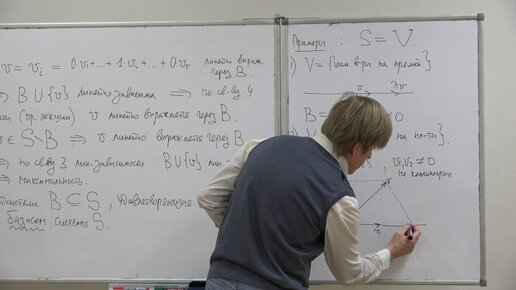 v = vᵢ = 0·v₁+...+1·vᵢ+...+0·vᵣ линейно выраж. через B.
⇒ B ∪ {v} линейно зависима ⇒ по св-ву 4
(пр. лекции) v линейно выражается через B.
v ∈ S∖B ⇒ v линейно выражается через B
по св-ву 3 лин. зависимости B ∪ {v} лин.
⇒ максимальность.
B ⊆ S, удовлетворяющая
базисом системы S.
Примеры: S = V.
1) V = {геом. в-ры на прямой}
v λv
B =
на пл-ти}
v₁, v₂ ≠ 0
не коллинеарны
v
v₁